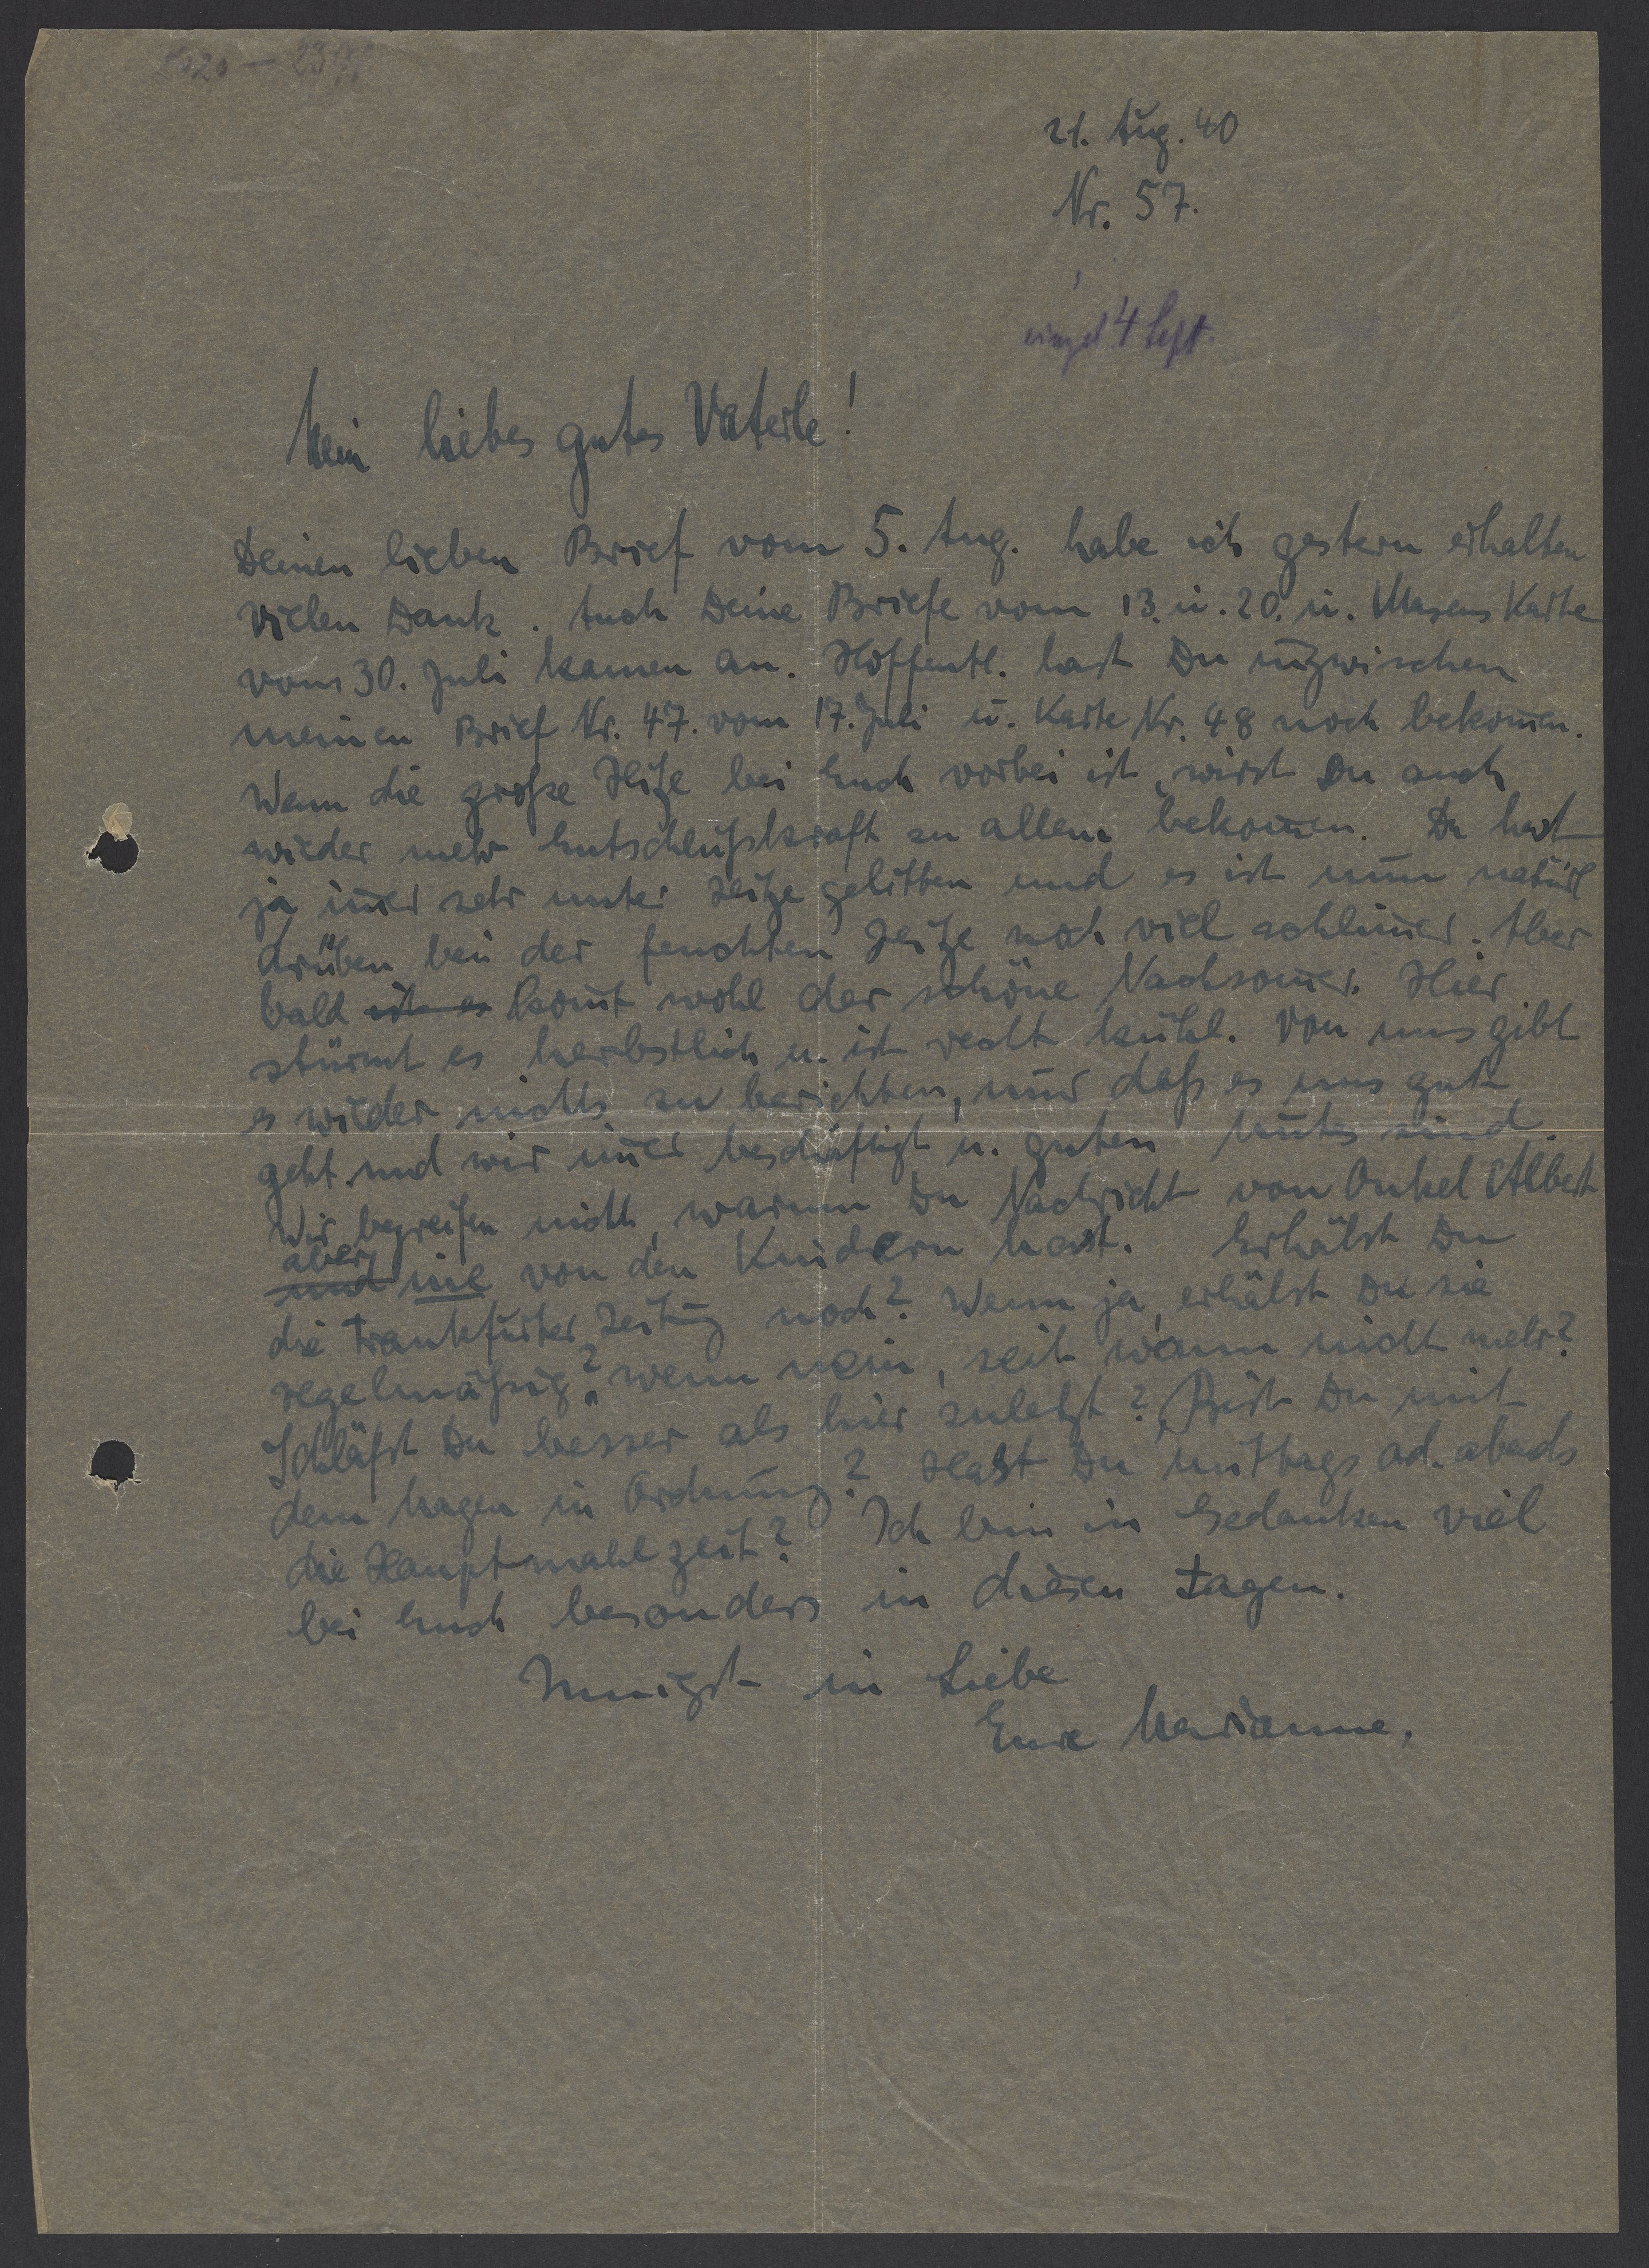 21. Aug. 40
Nr. 57.
4 Sept.
Mein liebes gutes Vaterle!
Deinen lieben Brief vom 5. Aug. habe ich gestern erhalten
vielen Dank. Auch Deine Briefe vom 13. u. 20. u. Karte
vom 30. Juli kamen an. Hoffentl. hast Du inzwischen
meinen Brief Nr. 47. vom 17. Juli u. Karte Nr. 48 noch bekom̄en.
Wenn die große Hitze bei Euch vorbei ist, wirst Du auch
wieder mehr Entschlußkraft zu allem bekom̄en. Du hast
ja im̄er sehr unter Hitze gelitten und es ist nun natürl
drüben bei der feuchten Hitze noch viel schlim̄er. Aber
bald ist es kom̄t wohl der schöne Nachsom̄er. Hier
stürmt es herbstlich u. ist recht kühl. Von uns gibt
es wieder nichts zu berichten, nur daß es uns gut
geht und wir im̄er beschäftigt u. guten Mutes sind.
Wir begreifen nicht, warum Du Nachricht von Onkel Albert
aber
und nie von den Kindern hast. Erhälst Du
die Frankfurter Zeitung noch? Wenn ja, erhälst Du sie
regelmäßig? wenn nein, seit wann nicht mehr?
Schläfst Du besser als hier zuletzt? Bist Du mit
dem Magen in Ordnung? Hast Du mittags od. abends
die Hauptmahlzeit? Ich bin in Gedanken viel
bei Euch besonders in diesen Tagen.
Innigst in Liebe
Eure Marianne.